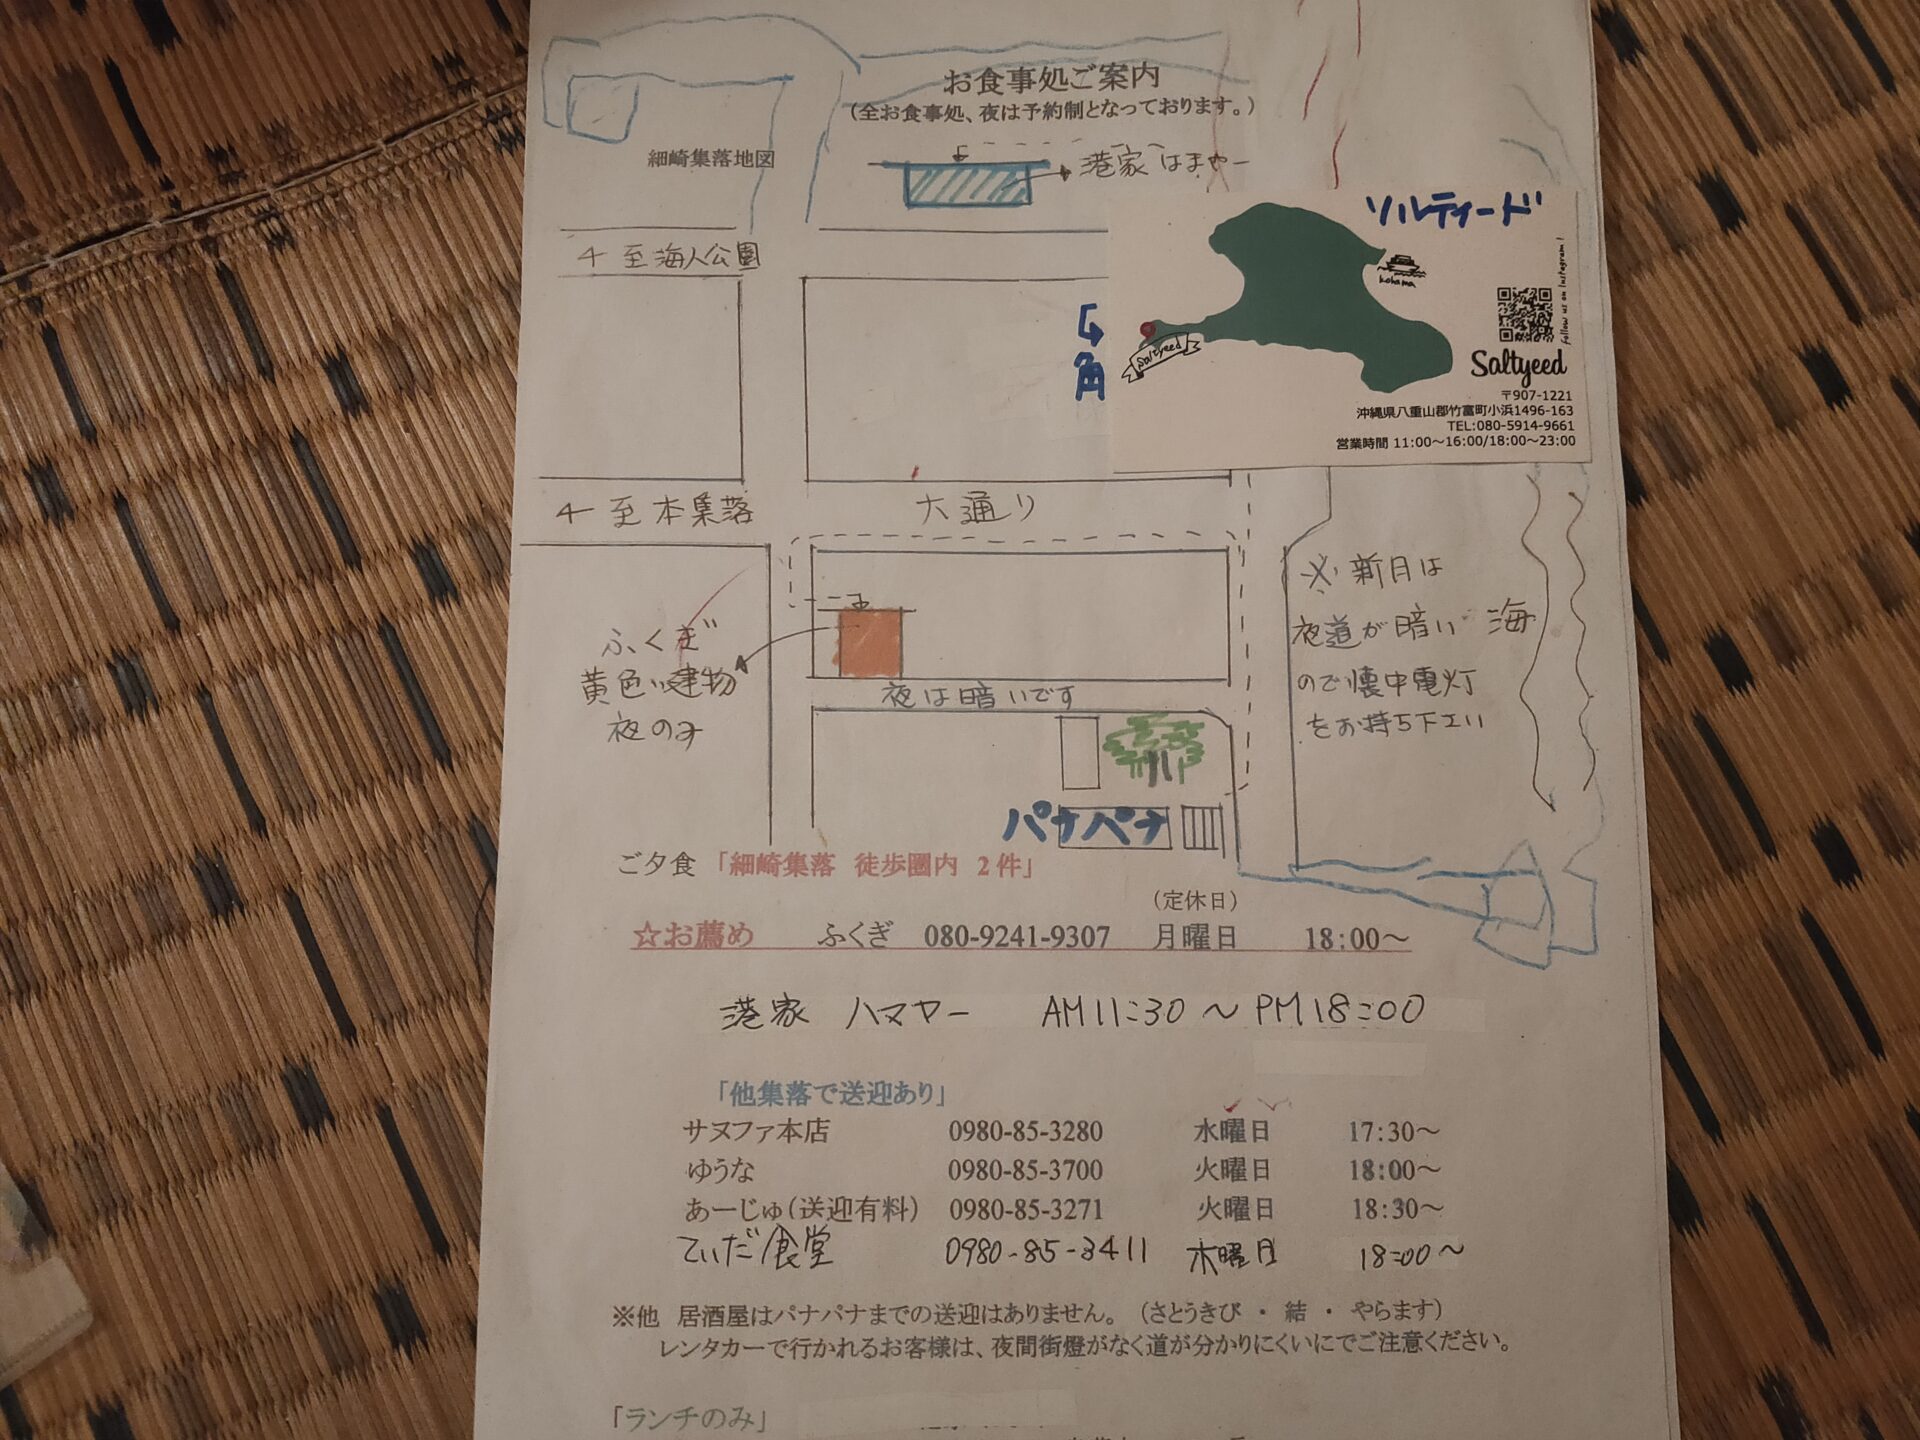 お食事処ご案内
(全お食事処、夜は予約制となっております。)
細崎集落地図
港家 はまやー
至海人公園
ソルティード
kohama
follow us on Instagram !
Saltyeed
角
Saltyeed
〒907-1221
沖縄県八重山郡竹富町小浜1496-163
TEL:080-5914-9661
営業時間 11:00～16:00/18:00～23:00
至本集落
大通り
※新月は
夜道が暗い
ので懐中電灯
をお持ち下エい
海
ふくぎ
黄色い建物
夜のみ
夜は暗いです
パナパナ
ご夕食「細崎集落 徒歩圏内 2件」
(定休日)
☆お薦め ふくぎ 080-9241-9307 月曜日 18:00～
港家 ハマヤー AM11:30～PM18:00
「他集落で送迎あり」
サヌファ本店 0980-85-3280 水曜日 17:30～
ゆうな 0980-85-3700 火曜日 18:00～
あーじゅ(送迎有料) 0980-85-3271 火曜日 18:30～
てぃだ食堂 0980-85-3411 木曜日 18:00～
※他 居酒屋はパナパナまでの送迎はありません。(さとうきび・結・やらます)
レンタカーで行かれるお客様は、夜間街燈がなく道が分かりにくいにでご注意ください。
「ランチのみ」